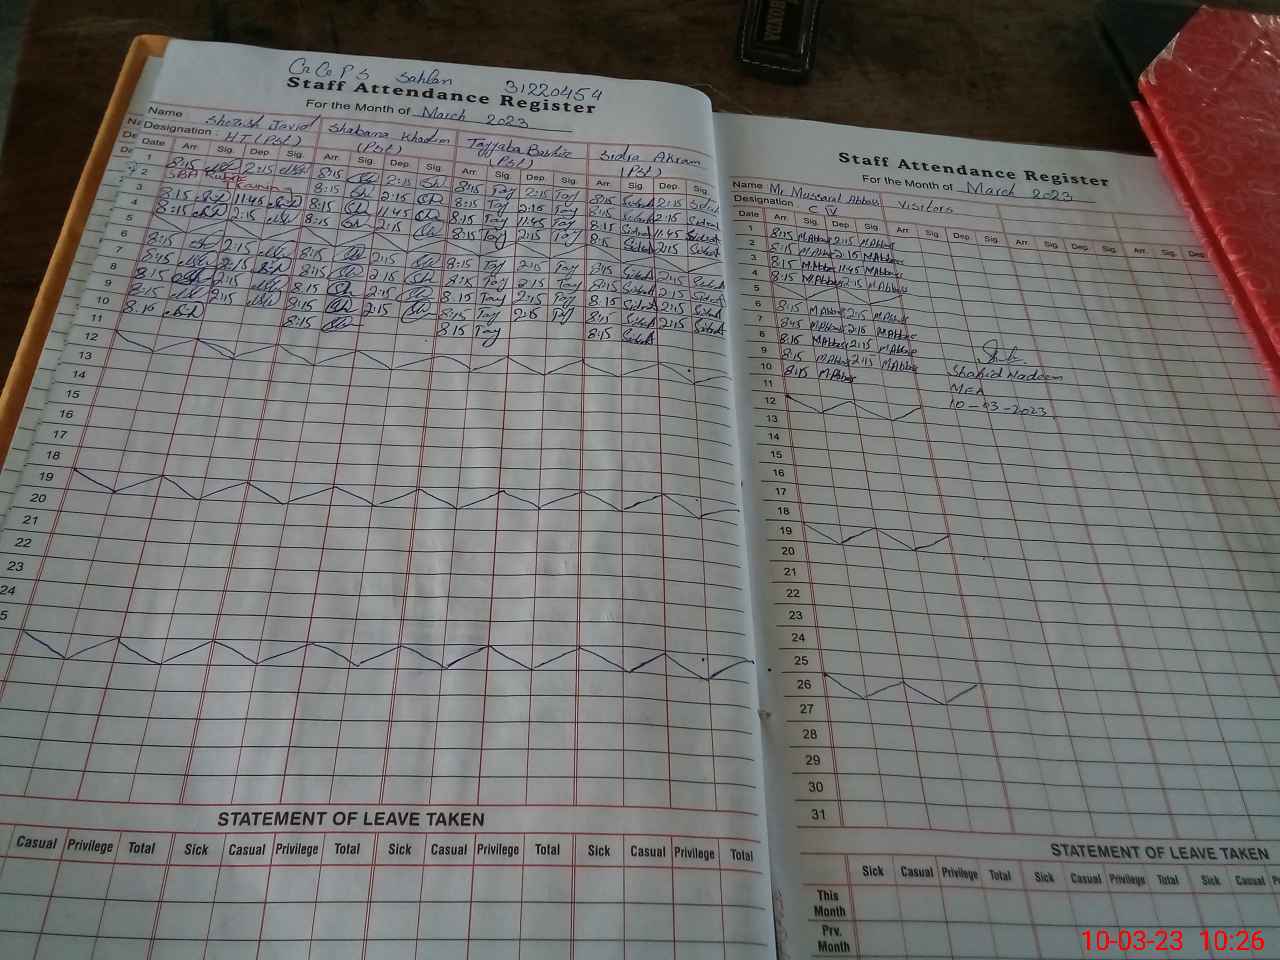 Sahlan 31220454
Staff Attendance Register
For the Month of March 2023
Name Shabana Khadim Tayyaba Bashir Sidra Akram
Designation : H.T (PST) (PST) (PST) (PST)
Date Arr. Sig. Dep. Sig. Arr. Sig. Dep. Sig. Arr. Sig. Dep. Sig. Arr. Sig. Dep. Sig.
1 8:15 2:15 8:15 2:15 8:15 Tay 2:15 Tay 8:15 Sidrah 2:15 Sidrah
2 Training 8:15 2:15 8:15 Tay 2:15 Tay 8:15 Sidrah 2:15 Sidrah
3 8:15 11:45 8:15 11:45 8:15 Tay 11:45 Tay 8:15 Sidrah 11:45 Sidrah
4 8:15 2:15 8:15 2:15 8:15 Tay 2:15 Tay 8:15 Sidrah 2:15 Sidrah
6 8:15 2:15 8:15 2:15 8:15 Tay 2:15 Tay 8:15 Sidrah 2:15 Sidrah
7 8:45 2:15 8:45 2:15 8:15 Tay 2:15 Tay 8:15 Sidrah 2:15 Sidrah
8 8:15 2:15 8:15 2:15 8:15 Tay 2:15 Tay 8:15 Sidrah 2:15 Sidrah
9 8:15 2:15 8:15 2:15 8:15 Tay 2:15 Tay 8:15 Sidrah 2:15 Sidrah
10 8:15 8:15 8:15 Tay 8:15 Sidrah
11
12
13
14
15
16
17
18
19
20
21
22
23
24
5
STATEMENT OF LEAVE TAKEN
Casual Privilege Total Sick Casual Privilege Total Sick Casual Privilege Total Sick Casual Privilege Total
Staff Attendance Register
For the Month of March 2023
Name Mr Mussarat Abbas Visitors
Designation
Date Arr. Sig. Dep. Sig. Arr. Sig. Dep. Sig. Arr. Sig. Dep. Sig. Arr. Sig. Dep.
1 8:15 MAbbas 2:15 MAbbas
2 8:15 MAbbas 2:15 MAbbas
3 8:15 MAbbas 11:45 MAbbas
4 8:15 MAbbas 2:15 MAbbas
5
6 8:15 MAbbas 2:15 MAbbas
7 8:45 MAbbas 2:15 MAbbas
8 8:15 MAbbas 2:15 MAbbas
9 8:15 MAbbas 2:15 MAbbas
10 8:15 MAbbas
Shahid Nadeem
MEA
10-03-2023
11
12
13
14
15
16
17
18
19
20
21
22
23
24
25
26
27
28
29
30
31
STATEMENT OF LEAVE TAKEN
Sick Casual Privilege Total Sick Casual Privilege Total Sick Casual
This Month
Prv. Month
10-03-23 10:26